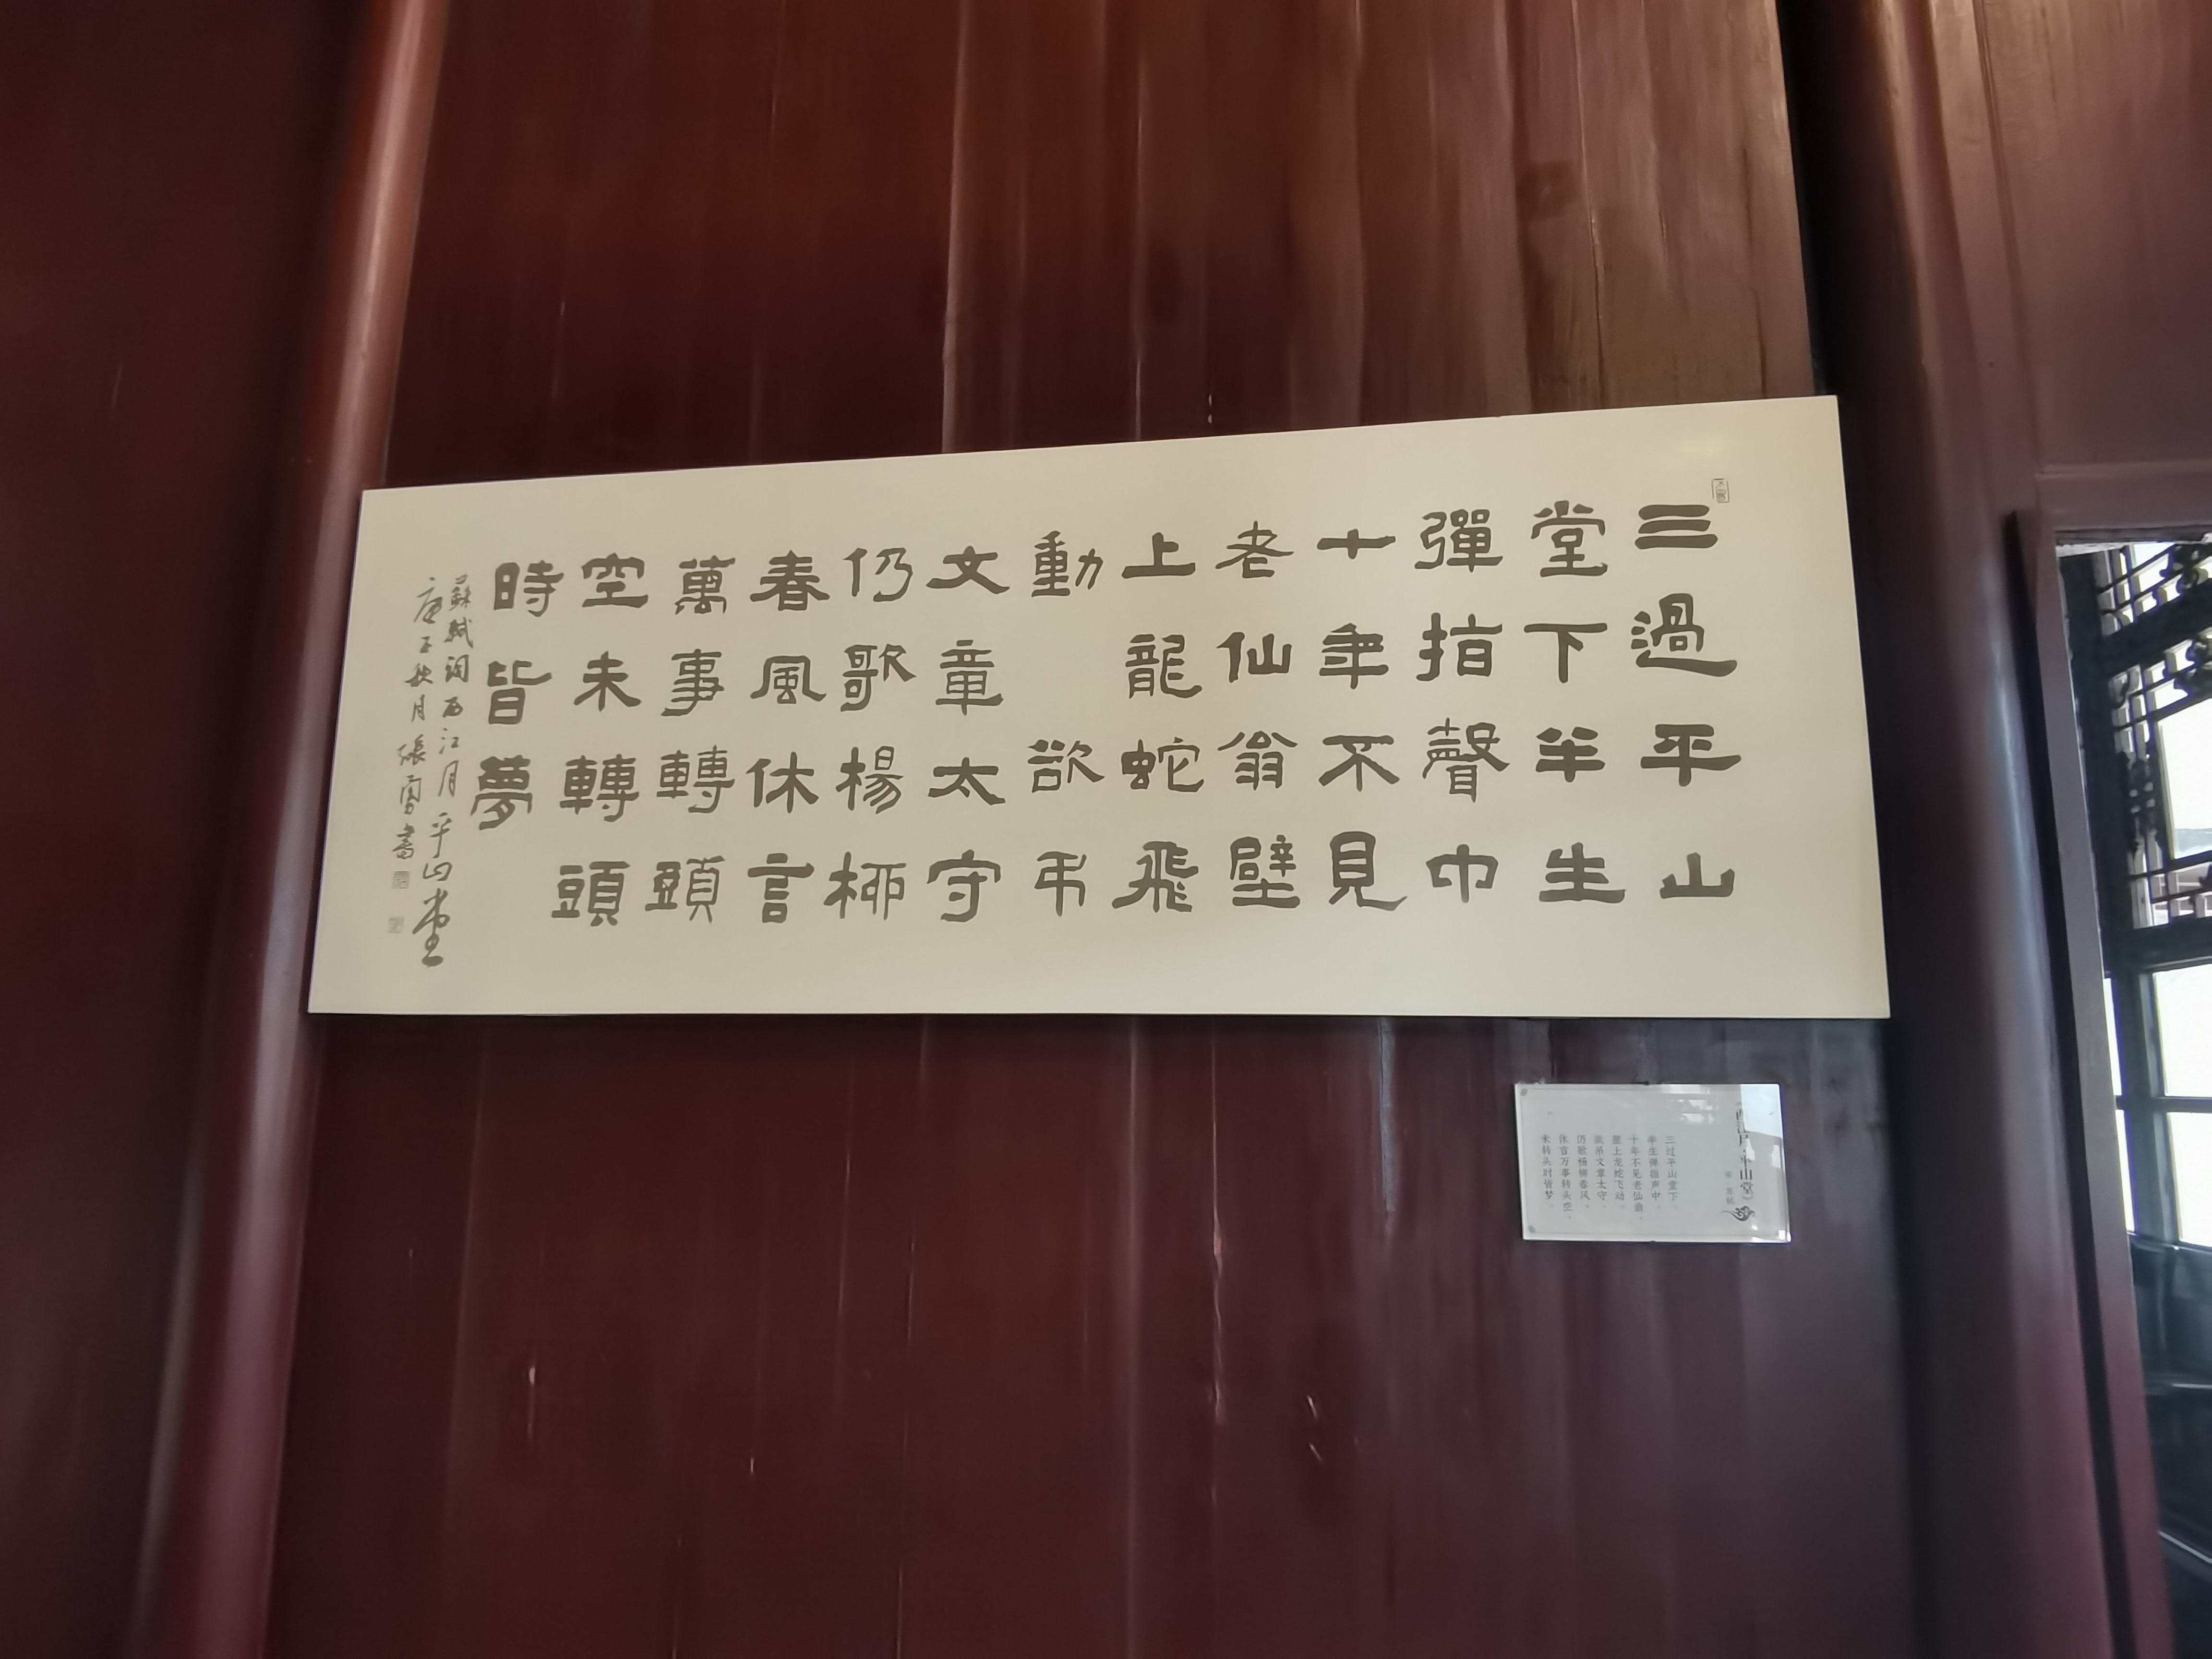 三過平山
堂下半生
彈指聲中
十年不見
老仙翁壁
上龍蛇飛
動 欲弔
文章太守
仍歌楊柳
春風休言
萬事轉頭
空未轉頭
時皆夢
蘇軾詞西江月平山堂
秋月張書
西江月·平山堂》
宋 苏轼
三过平山堂下，
半生弹指声中。
十年不见老仙翁，
壁上龙蛇飞动。
欲吊文章太守，
仍歌杨柳春风。
休言万事转头空，
未转头时皆梦。